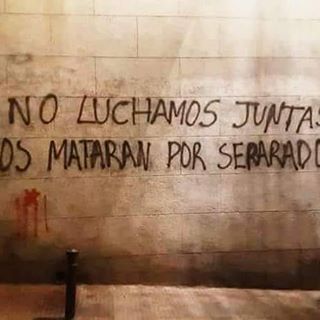 NO LUCHAMOS JUNTAS
OS MATARAN POR SEPARADO